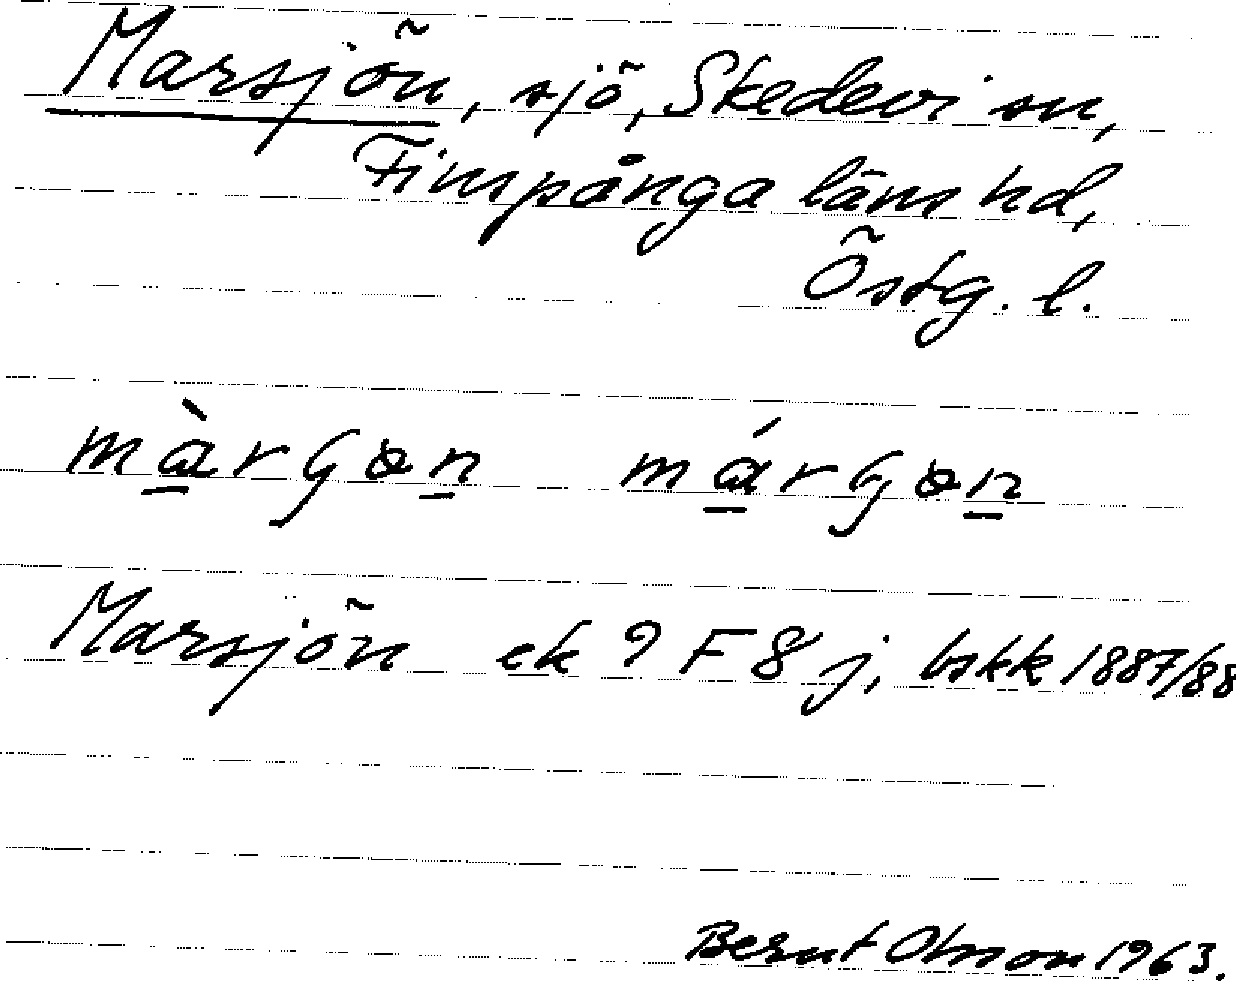 Marsjön, sjö, Skedevi sn,
Finspånga läns hd,
Östg. l.
Marsjön ek 9 F 8 j, bskk 1887/88
Bernt Olsson 1963.